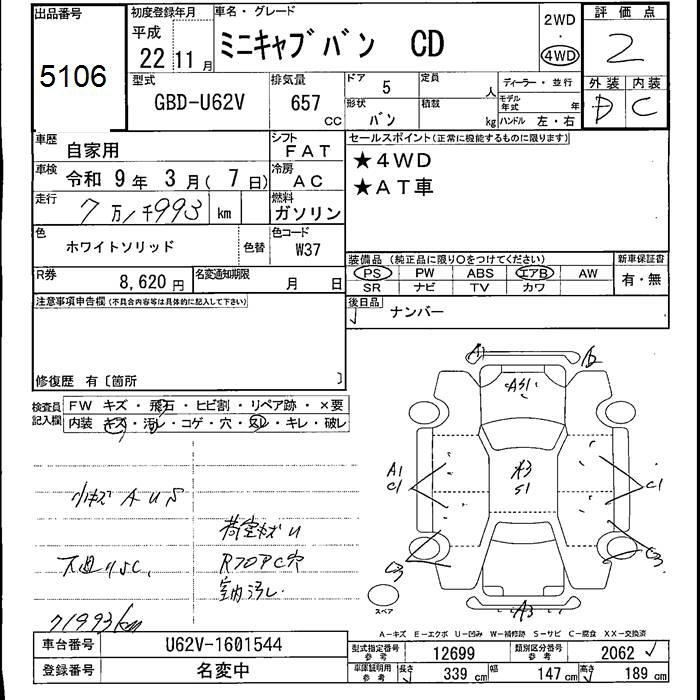 出品番号 初度登録年月 車名・グレード 2WD 評価点
5106 平成 22年 11月 ミニキャブバン CD ・ 4WD 2
型式 排気量 ドア 5 定員 人 ディーラー・並行 外装 内装
GBD-U62V 657cc 形状 バン 積載 kg モデル年式 年 ハンドル 左・右 D C
車歴 自家用 シフト FAT セールスポイント(正常に機能するものに限ります)
車検 令和 9年 3月(7日) 冷房 AC ★4WD
走行 7万1千993 km 燃料 ガソリン ★AT車
色 ホワイトソリッド 色替 色コード W37
装備品(純正品に限り○をつけてください) 新車保証書
R券 8,620円 名変通知期限 月 日 PS PW ABS エアB AW 有・無
SR ナビ TV カワ
注意事項申告欄(不具合内容等は具体的に記入して下さい) 後日品 ナンバー
修復歴 有〔箇所 〕
検査員記入欄 FW キズ・飛石・ヒビ割・リペア跡・×要
内装 キズ・汚レ・コゲ・穴・スレ・キレ・破レ
A1 A2
A51
A1 C1 A3 51 C1
小キズ AUS
荷室キズU
下廻りSC, R70PC穴
室内汚レ
C3 C3
スペア A3
71993km
A-キズ E-エクボ U-凹み W-補修跡 S-サビ C-腐食 XX-交換済
車台番号 U62V-1601544 型式指定番号参考 12699 類別区分番号参考 2062
登録番号 名変中 車庫証明用参考 長さ 339cm 幅 147cm 高さ 189cm